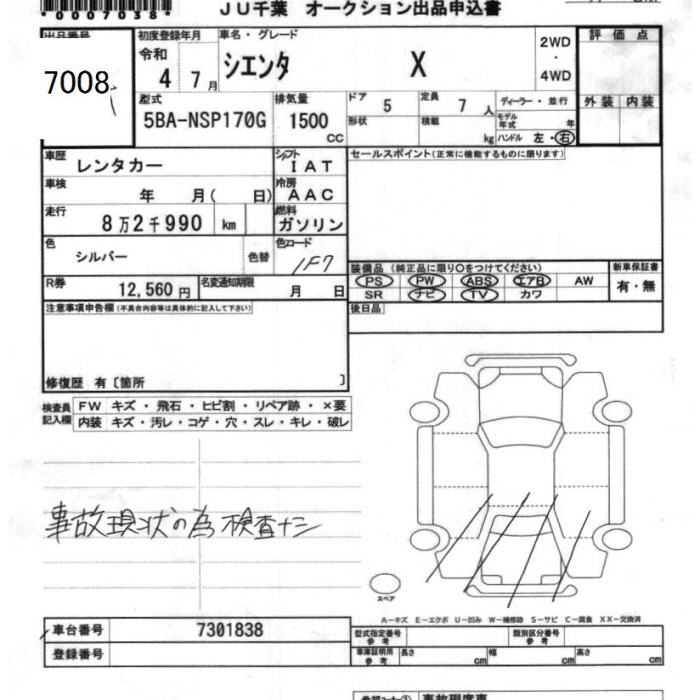 *0007038*
JU千葉 オークション出品申込書
出品番号 初度登録年月 車名・グレード 2WD・4WD 評価点
7008 令和 4 7月 シエンタ X
型式 排気量 ドア 5 定員 7人 ディーラー・並行 外装 内装
5BA-NSP170G 1500cc 形状 積載 kg モデル年式 年 ハンドル 左・右
車歴 レンタカー シフト IAT セールスポイント(正常に機能するものに限ります)
車検 年 月( 日) 冷房 AAC
走行 8万2千990 km 燃料 ガソリン
色 シルバー 色替 色コード 1F7
装備品(純正品に限り○をつけてください) 新車保証書
R券 12,560円 名変通知期限 月 日 PS PW ABS エアB AW 有・無
SR ナビ TV カワ
注意事項申告欄(不具合内容等は具体的に記入して下さい) 後日品
修復歴 有〔箇所 〕
検査員記入欄 FW キズ・飛石・ヒビ割・リペア跡・×要
内装 キズ・汚レ・コゲ・穴・スレ・キレ・破レ
事故現状の為検査ナシ
スペア
A-キズ E-エクボ U-凹み W-補修跡 S-サビ C-腐食 XX-交換済
車台番号 7301838 型式指定番号 参考 類別区分番号 参考
登録番号 車庫証明用 参考 長さ cm 幅 cm 高さ cm
希望コーナー① 事故現度車